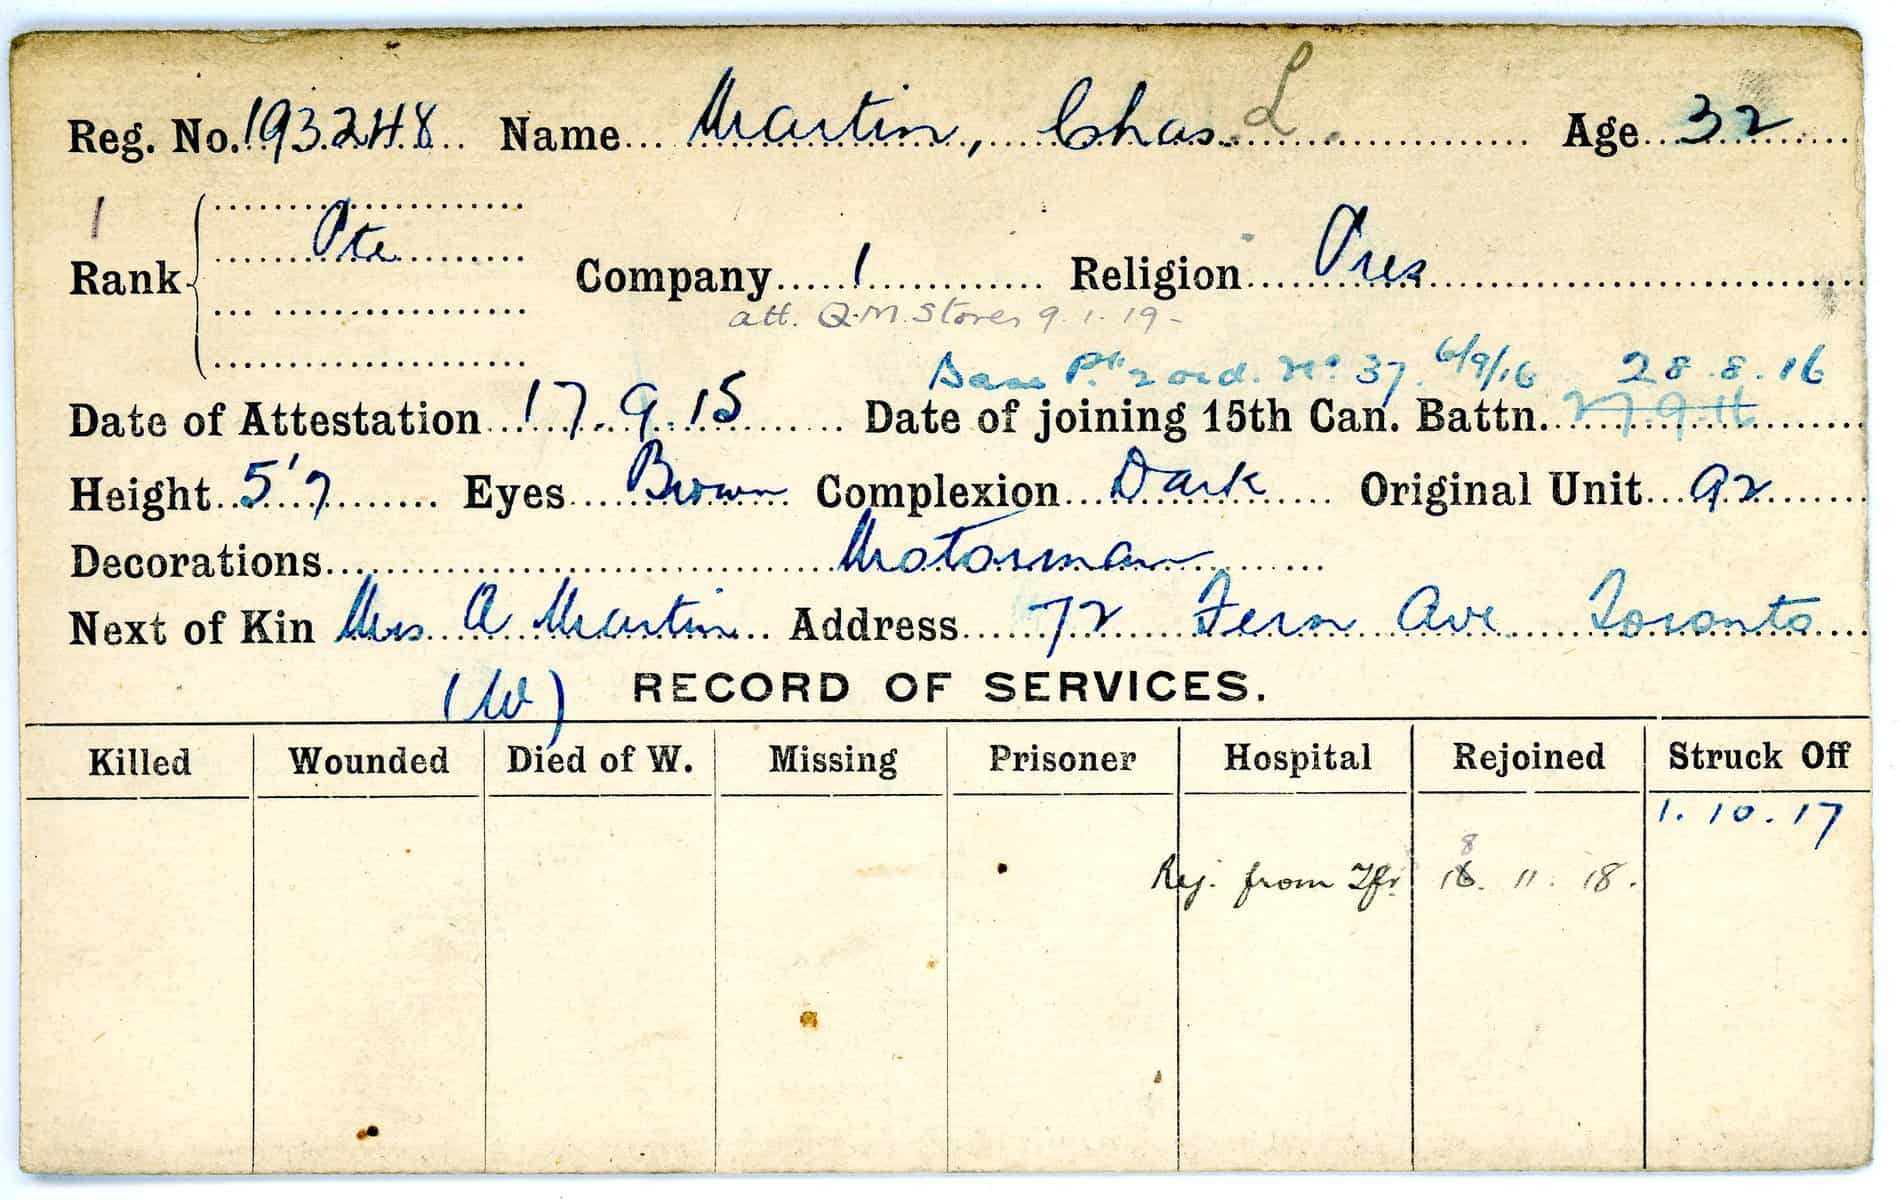 Reg. No. 193248 Name Martin, Chas. L. Age 32
1
Rank Pte Company 1 Religion Pres
att. Q.M. Stores 9.1.19-
Base Pt. 2 ord. No. 37. 6/9/16 28.8.16
Date of Attestation 17.9.15 Date of joining 15th Can. Battn.
Height 5'7 Eyes Brown Complexion Dark Original Unit 92
Decorations Motorman
Next of Kin Mrs A Martin Address 72 Fern Ave Toronto
(W) RECORD OF SERVICES.
Killed Wounded Died of W. Missing Prisoner Hospital Rejoined Struck Off
1.10.17
8
Rej. from Tfr. 11. 18.